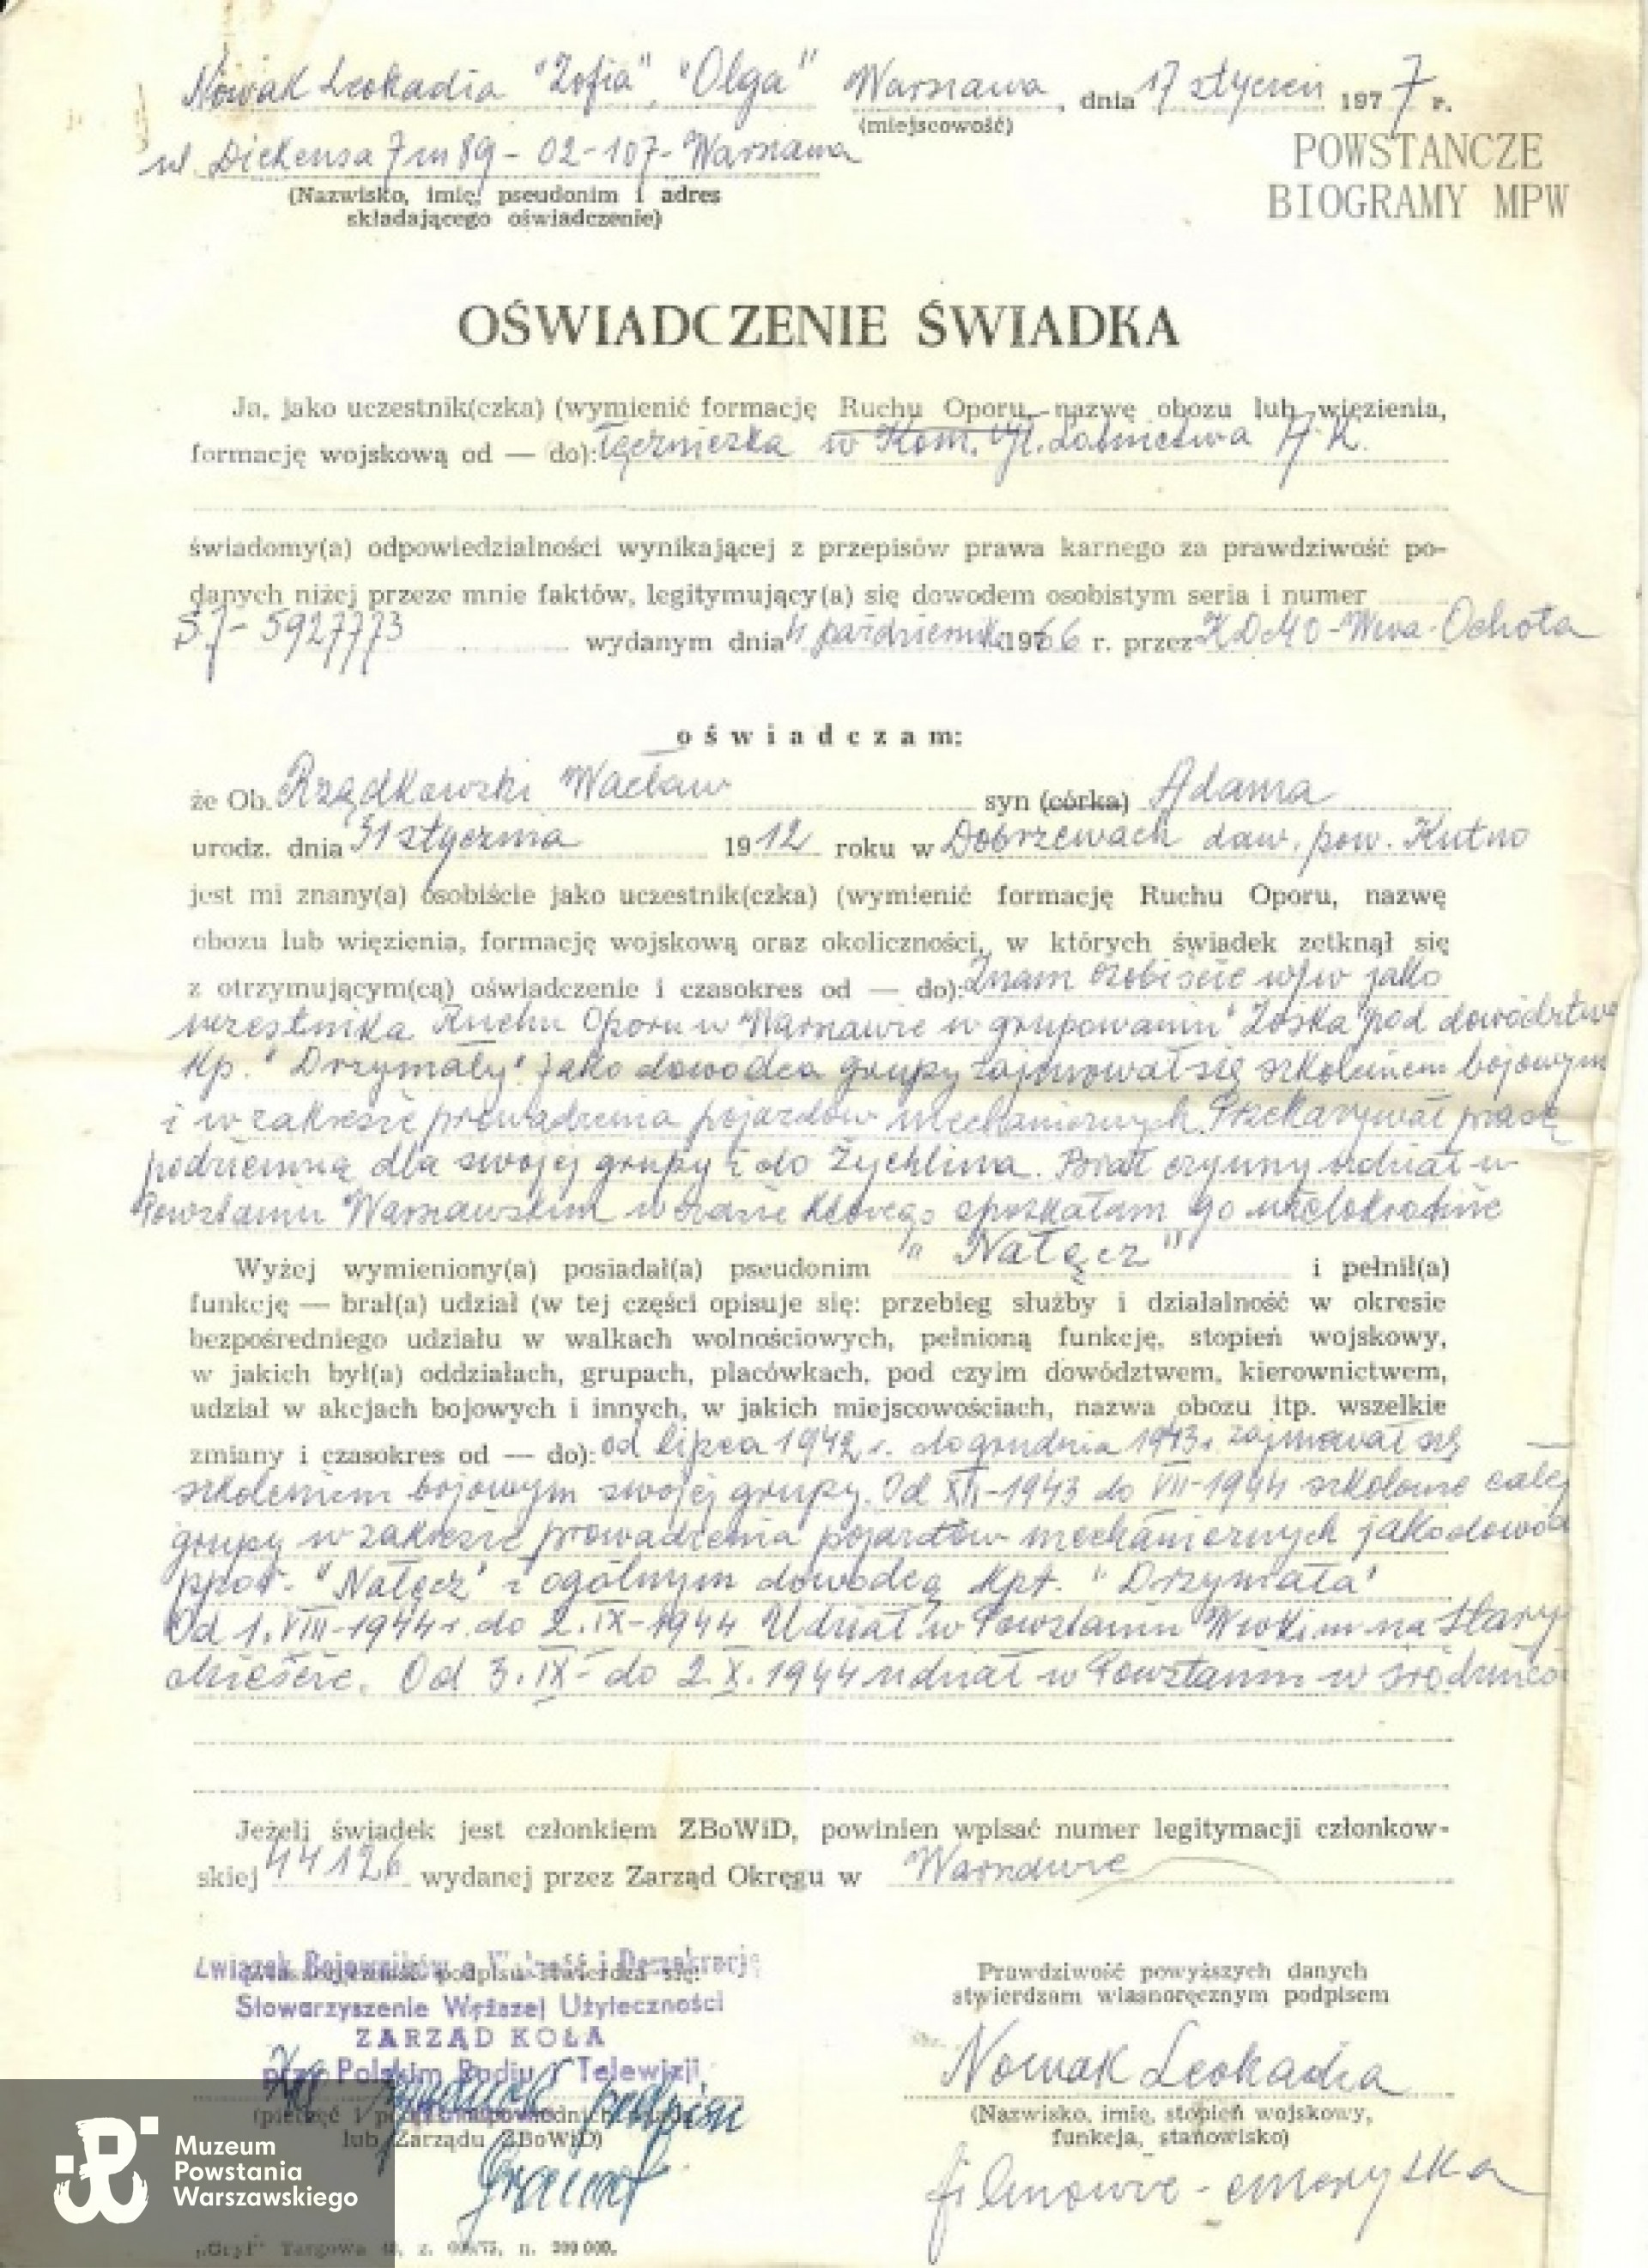 Nowak Leokadia "Zofia", "Olga" Warszawa, dnia 17 styczeń 1977 r.
(miejscowość)
POWSTANCZE
BIOGRAMY MPW
ul. Dickensa 7 m 89 - 02-107 - Warszawa
(Nazwisko, imię, pseudonim i adres
składającego oświadczenie)
OŚWIADCZENIE ŚWIADKA
Ja, jako uczestnik(czka) (wymienić formację Ruchu Oporu, nazwę obozu lub więzienia,
formację wojskową od — do): Łączniczka w Kom. Wył. Lotnictwa A.K.
świadomy(a) odpowiedzialności wynikającej z przepisów prawa karnego za prawdziwość po-
danych niżej przeze mnie faktów, legitymujący(a) się dowodem osobistym seria i numer
SJ - 5927773 wydanym dnia 4 październik 1966 r. przez KDMO - Wwa - Ochota
oświadczam:
że Ob. Rządkowski Wacław syn (córka) Adama
urodz. dnia 31 stycznia 1912 roku w Dobrzewach daw. pow. Kutno
jest mi znany(a) osobiście jako uczestnik(czka) (wymienić formację Ruchu Oporu, nazwę
obozu lub więzienia, formację wojskową oraz okoliczności, w których świadek zetknął się
z otrzymującym(cą) oświadczenie i czasokres od — do): Znam osobiście w/w jako
uczestnika Ruchu Oporu w Warszawie w grupowaniu "Zośka" pod dowództwe
Kp. "Drzymały". Jako dowódca grupy zajmował się szkoleniem bojowym
i w zakresie prowadzenia pojazdów mechanicznych. Przekazywał prasę
podziemną dla swojej grupy i do Żychlina. Brał czynny udział w
Powstaniu Warszawskim w czasie którego spotkałam go wielokrotnie
Wyżej wymieniony(a) posiadał(a) pseudonim "Nałęcz" i pełnił(a)
funkcję — brał(a) udział (w tej części opisuje się: przebieg służby i działalność w okresie
bezpośredniego udziału w walkach wolnościowych, pełnioną funkcję, stopień wojskowy,
w jakich był(a) oddziałach, grupach, placówkach, pod czyim dowództwem, kierownictwem,
udział w akcjach bojowych i innych, w jakich miejscowościach, nazwa obozu itp. wszelkie
zmiany i czasokres od — do): od lipca 1942 r. do grudnia 1943 r. zajmował się
szkoleniem bojowym swojej grupy. Od XII-1943 do VII-1944 szkolenie całej
grupy w zakresie prowadzenia pojazdów mechanicznych jako dowód
ppor. "Nałęcz" i ogólnym dowódcą kpt. "Drzymała"
Od 1.VIII-1944 r. do 2.IX-1944 Udział w Powstaniu Wskim na Stary
mieście. Od 3.IX- do 2.X.1944 udział w Powstaniu w śródmieś
Jeżeli świadek jest członkiem ZBoWiD, powinien wpisać numer legitymacji członkow-
skiej 44126 wydanej przez Zarząd Okręgu w Warszawie
Związek Bojowników o Wolność i Demokrację
podpisu stwierdza się:
Stowarzyszenie Wyższej Użyteczności
ZARZĄD KOŁA
przy Polskim Radiu i Telewizji
(pieczęć i
lub Zarządu ZBoWiD)
Prawdziwość powyższych danych
stwierdzam własnoręcznym podpisem
Nowak Leokadia
(Nazwisko, imię, stopień wojskowy,
funkcja, stanowisko)
filmowiec - emerytka
Muzeum
Powstania
Warszawskiego
„Gryf" Targowa